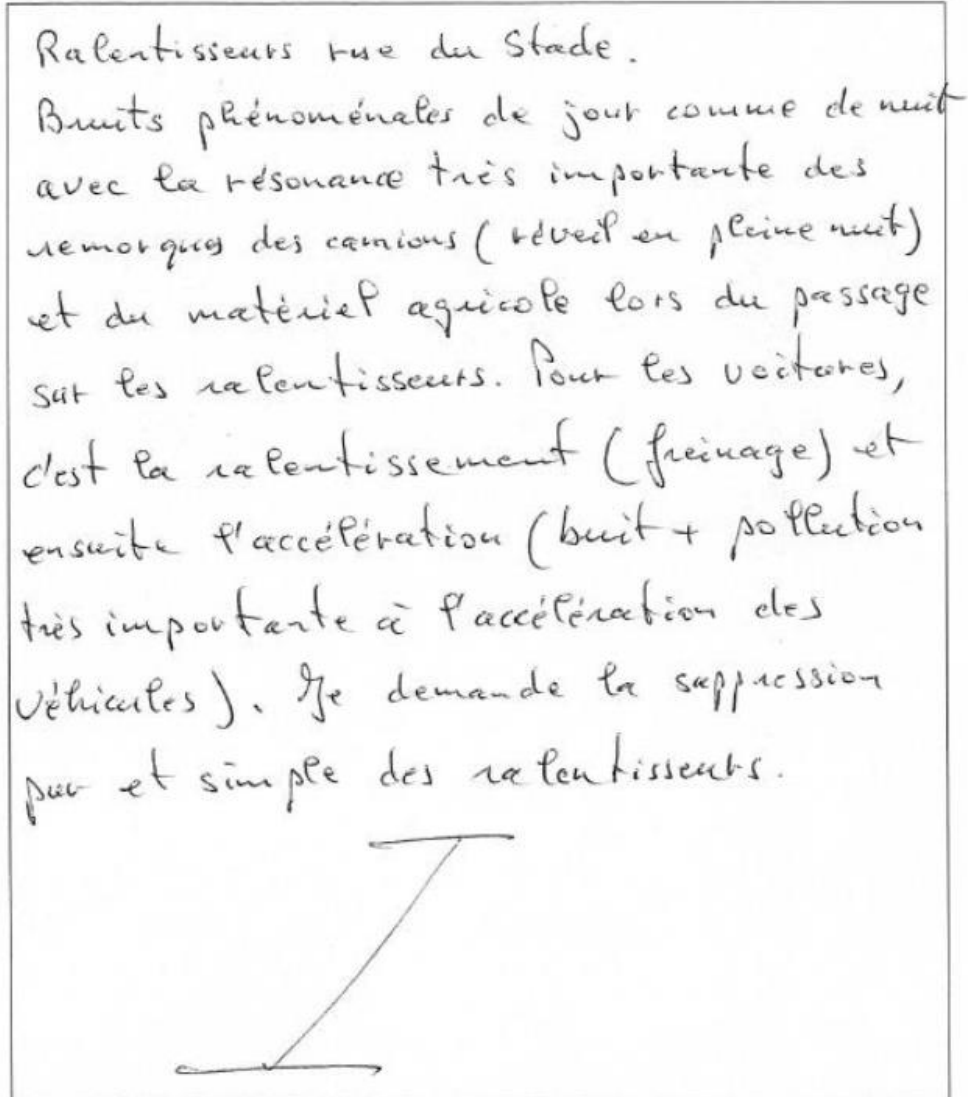 Ralentisseurs rue du Stade.
Bruits phénoménales de jour comme de nuit
avec la résonance très importante des
remorques des camions (réveil en pleine nuit)
et du matériel agricole lors du passage
sur les ralentisseurs. Pour les voitures,
c'est la ralentissement (freinage) et
ensuite l'accélération (buit + pollution
très importante à l'accélération des
véhicules). Je demande la suppression
pur et simple des ralentisseurs.